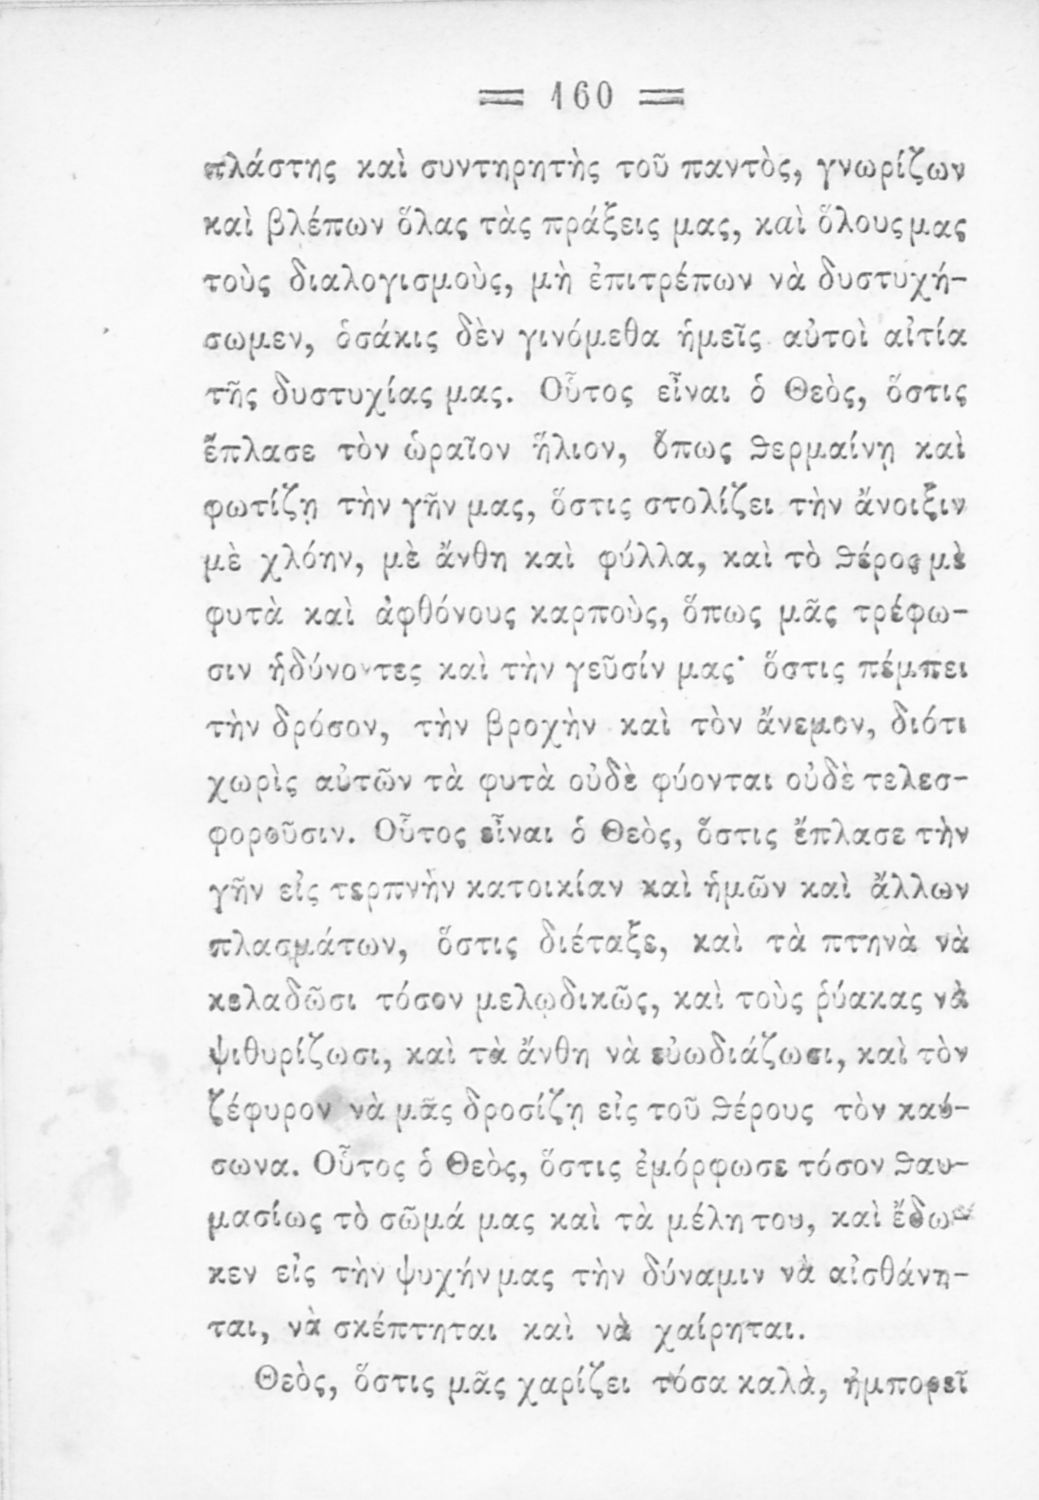 = 160 =
πλάστης καὶ συντηρητὴς τοῦ παντὸς, γνωρίζων
καὶ βλέπων ὅλας τὰς πράξεις μας, καὶ ὅλους μας
τοὺς διαλογισμοὺς, μὴ ἐπιτρέπων νὰ δυστυχή-
σωμεν, ὁσάκις δὲν γινόμεθα ἡμεῖς αὐτοὶ αἰτία
τῆς δυστυχίας μας. Οὗτος εἶναι ὁ Θεὸς, ὅστις
ἔπλασε τὸν ὡραῖον ἥλιον, ὅπως ϑερμαίνῃ καὶ
φωτίζῃ τὴν γῆν μας, ὅστις στολίζει τὴν ἄνοιξιν
μὲ χλόην, μὲ ἄνθη καὶ φύλλα, καὶ τὸ ϑέρος μὲ
φυτὰ καὶ ἀφθόνους καρποὺς, ὅπως μᾶς τρέφω-
σιν ἡδύνοντες καὶ τὴν γεῦσίν μας· ὅστις πέμπει
τὴν δρόσον, τὴν βροχὴν καὶ τὸν ἄνεμον, διότι
χωρὶς αὐτῶν τὰ φυτὰ οὐδὲ φύονται οὐδὲ τελεσ-
φοροῦσιν. Οὗτος εἶναι ὁ Θεὸς, ὅστις ἔπλασε τὴν
γῆν εἰς τερπνὴν κατοικίαν καὶ ἡμῶν καὶ ἄλλων
πλασμάτων, ὅστις διέταξε, καὶ τὰ πτηνὰ νὰ
κελαδῶσι τόσον μελῳδικῶς, καὶ τοὺς ῥύακας νὰ
ψιθυρίζωσι, καὶ τὰ ἄνθη νὰ εὐωδιάζωσι, καὶ τὸν
ζέφυρον νὰ μᾶς δροσίζῃ εἰς τοῦ ϑέρους τὸν καύ-
σωνα. Οὗτος ὁ Θεὸς, ὅστις ἐμόρφωσε τόσον ϑαυ-
μασίως τὸ σῶμά μας καὶ τὰ μέλη του, καὶ ἔδω-
κεν εἰς τὴν ψυχήν μας τὴν δύναμιν νὰ αἰσθάνη-
ται, νὰ σκέπτηται καὶ νὰ χαίρηται.
Θεὸς, ὅστις μᾶς χαρίζει τόσα καλὰ, ἠμπορεῖ